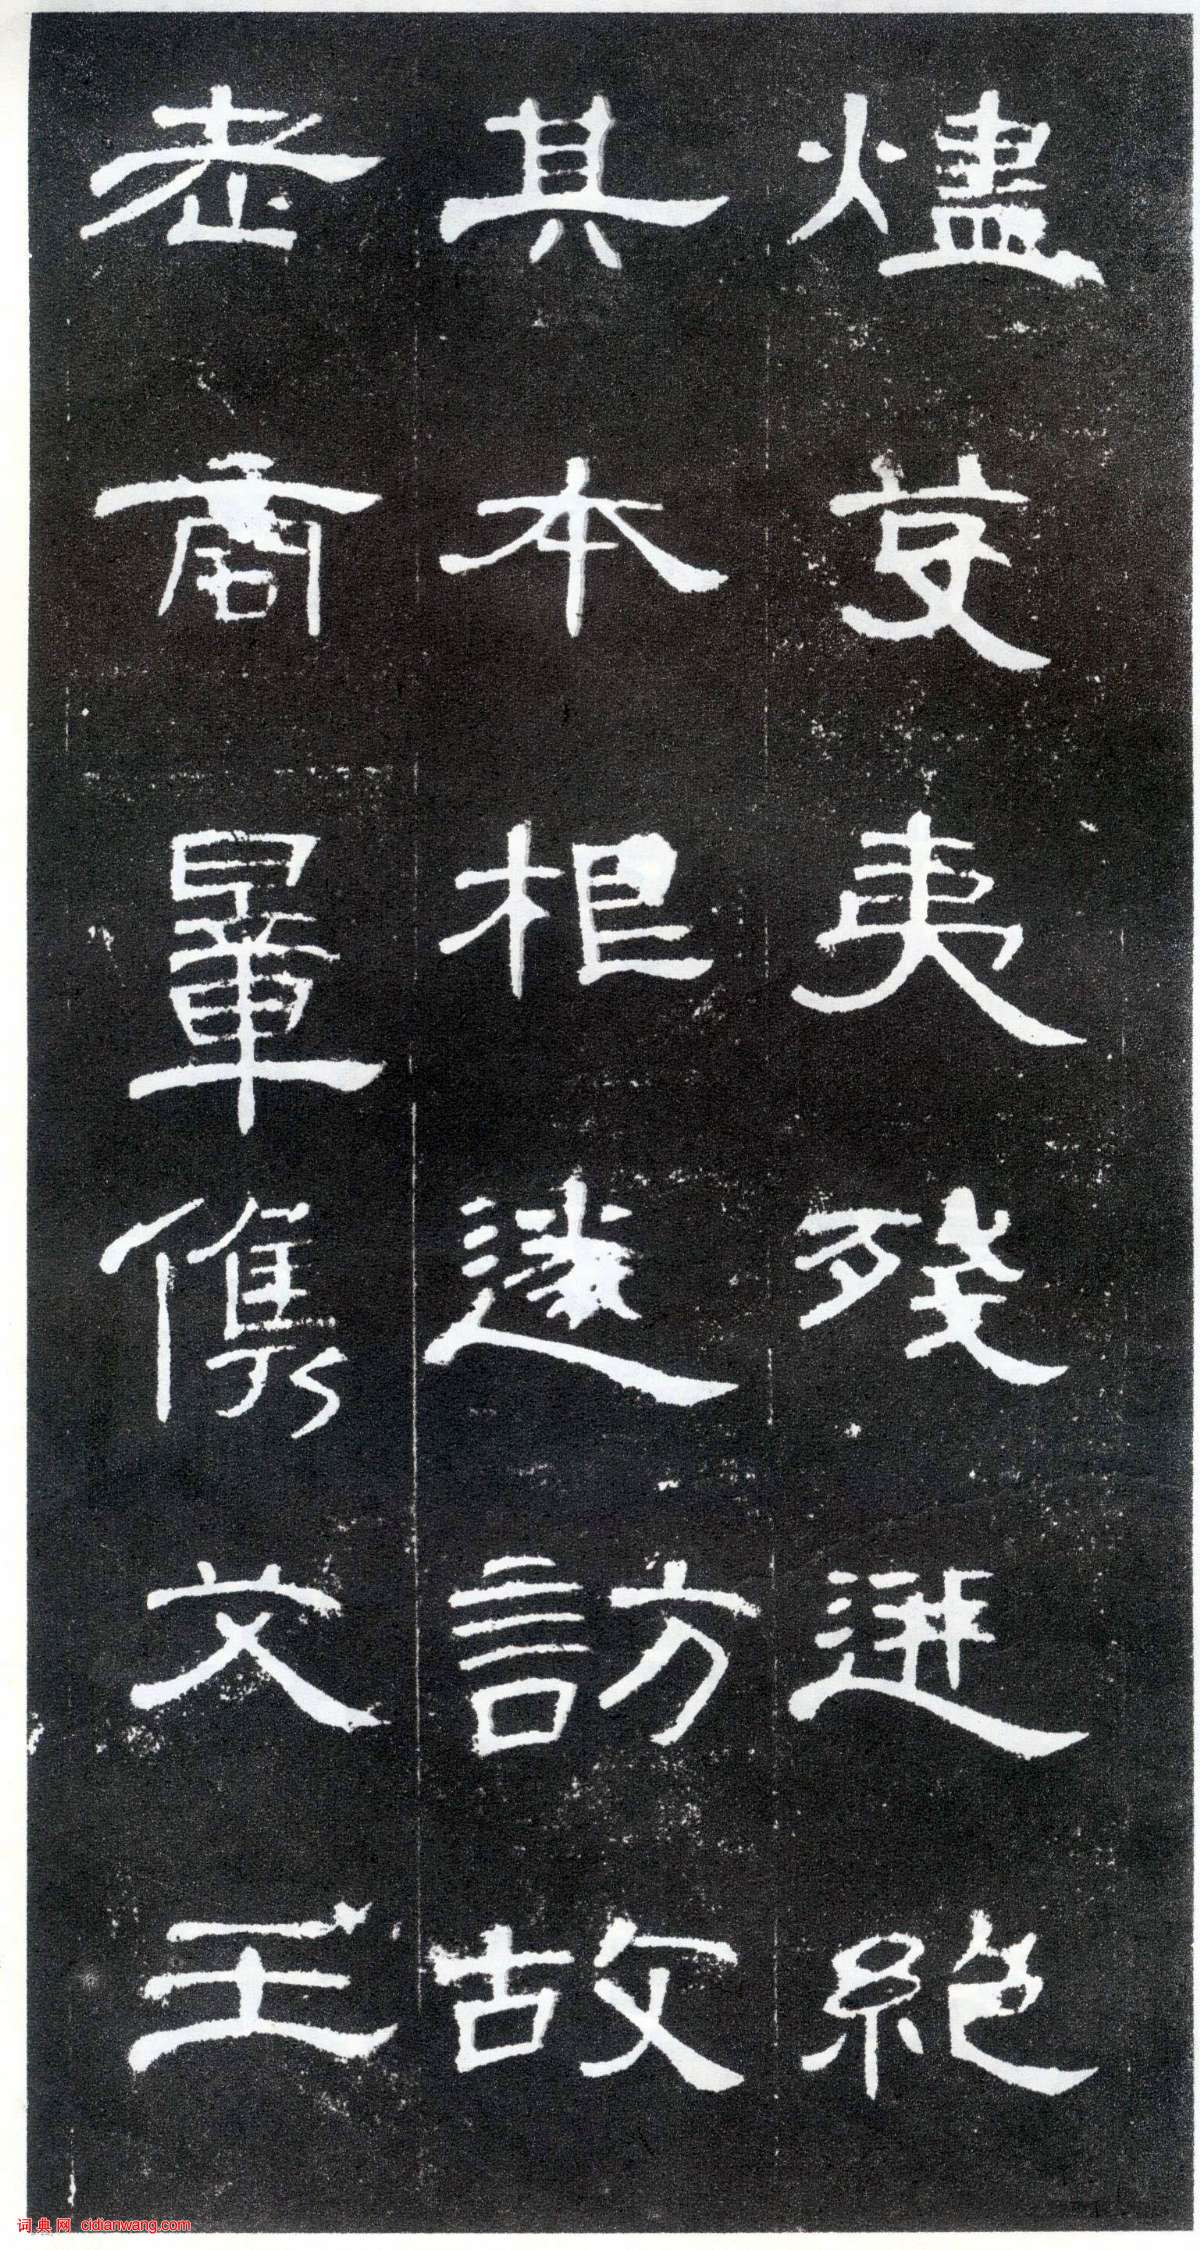 燼芟夷殘迸絕
其本根遂訪故
老商量儁艾王
词典网 cidianwang.com